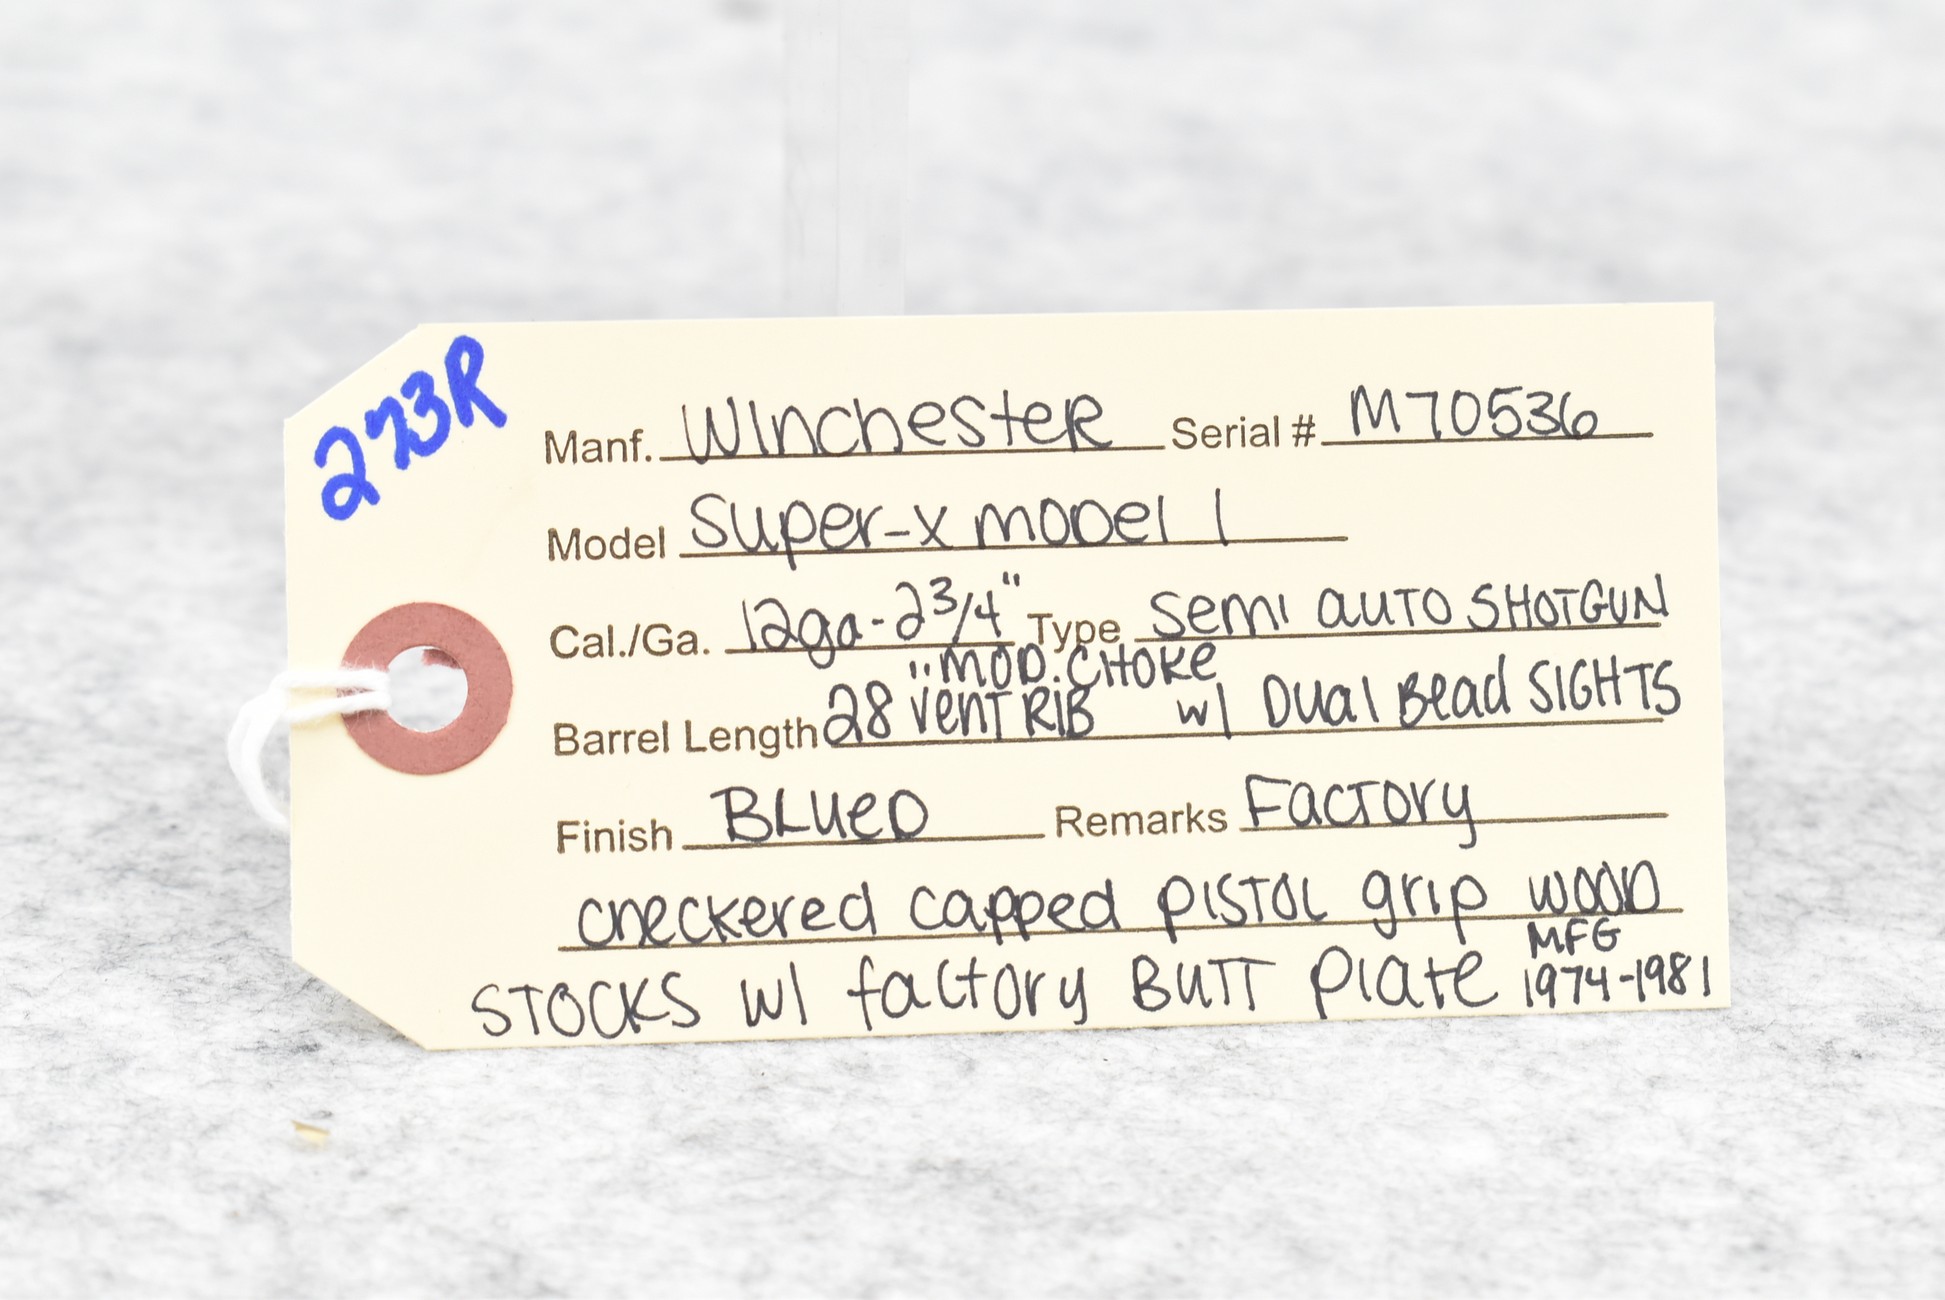 273R
Manf. Winchester Serial # M70536
Model Super-X Model 1
Cal./Ga. 12ga-2 3/4" Type Semi Auto SHOTGUN
" MOD. CHOKE
Barrel Length 28 Vent RIB w/ Dual Bead SIGHTS
Finish BLUED Remarks Factory
checkered capped pistol grip wood
MFG
STOCKS w/ factory BUTT Plate 1974-1981